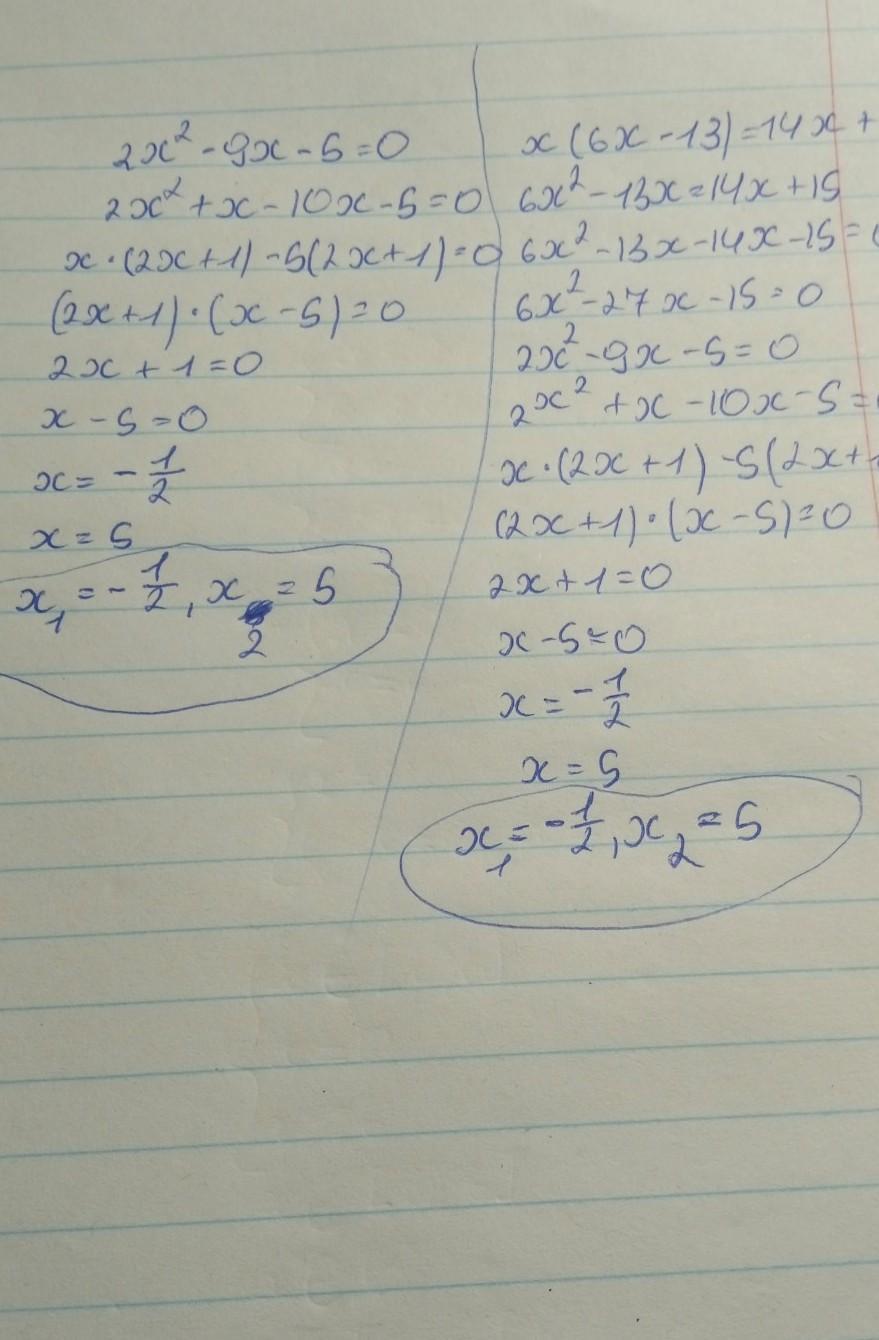 2x² - 9x - 5 = 0
2x² + x - 10x - 5 = 0
x · (2x + 1) - 5(2x + 1) = 0
(2x + 1) · (x - 5) = 0
2x + 1 = 0
x - 5 = 0
x = - 1/2
x = 5
x₁ = - 1/2, x₂ = 5
x (6x - 13) = 14x +
6x² - 13x = 14x + 15
6x² - 13x - 14x - 15 =
6x² - 27x - 15 = 0
2x² - 9x - 5 = 0
2x² + x - 10x - 5 =
x · (2x + 1) - 5(2x +
(2x + 1) · (x - 5) = 0
2x + 1 = 0
x - 5 = 0
x = - 1/2
x = 5
x₁ = - 1/2, x₂ = 5